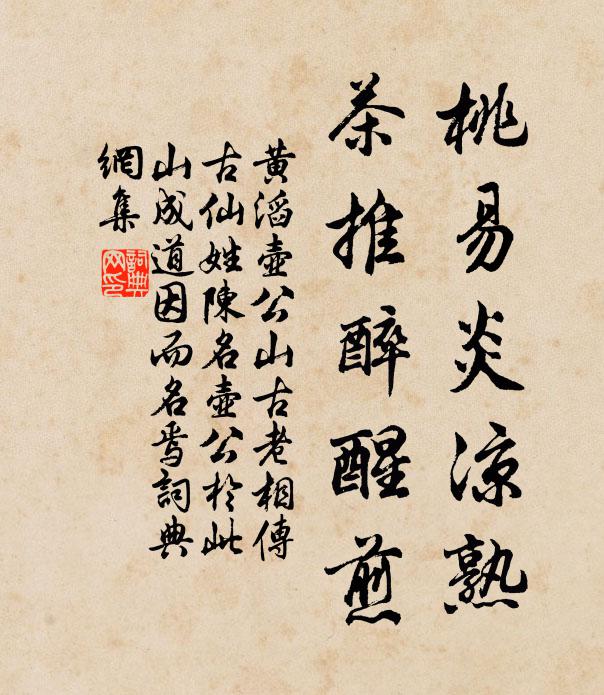 桃易炎涼熟
茶推醉醒煎
黃滔壺公山古老相傳
古仙姓陳名壺公於此
山成道因而名焉詞典
網集
詞典
网印